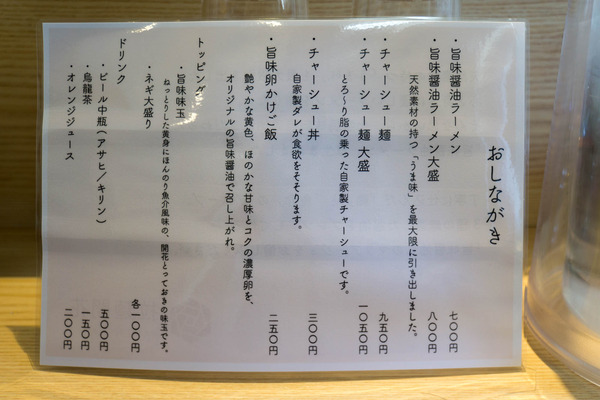 おしながき
・旨味醤油ラーメン 七〇〇円
・旨味醤油ラーメン大盛 八〇〇円
天然素材の持つ「うま味」を最大限に引き出しました。
・チャーシュー麺 九五〇円
・チャーシュー麺 大盛 一〇五〇円
とろ〜り脂の乗った自家製チャーシューです。
・チャーシュー丼 三〇〇円
自家製ダレが食欲をそそります。
・旨味卵かけご飯 二五〇円
艶やかな黄色、ほのかな甘味とコクの濃厚卵を、
オリジナルの旨味醤油で召し上がれ。
トッピング
・旨味味玉
ねっとりした黄身にほんのり魚介風味の、開花とっておきの味玉です。
・ネギ大盛り 各一〇〇円
ドリンク
・ビール中瓶(アサヒ/キリン) 五〇〇円
・烏龍茶 一五〇円
・オレンジジュース 二〇〇円